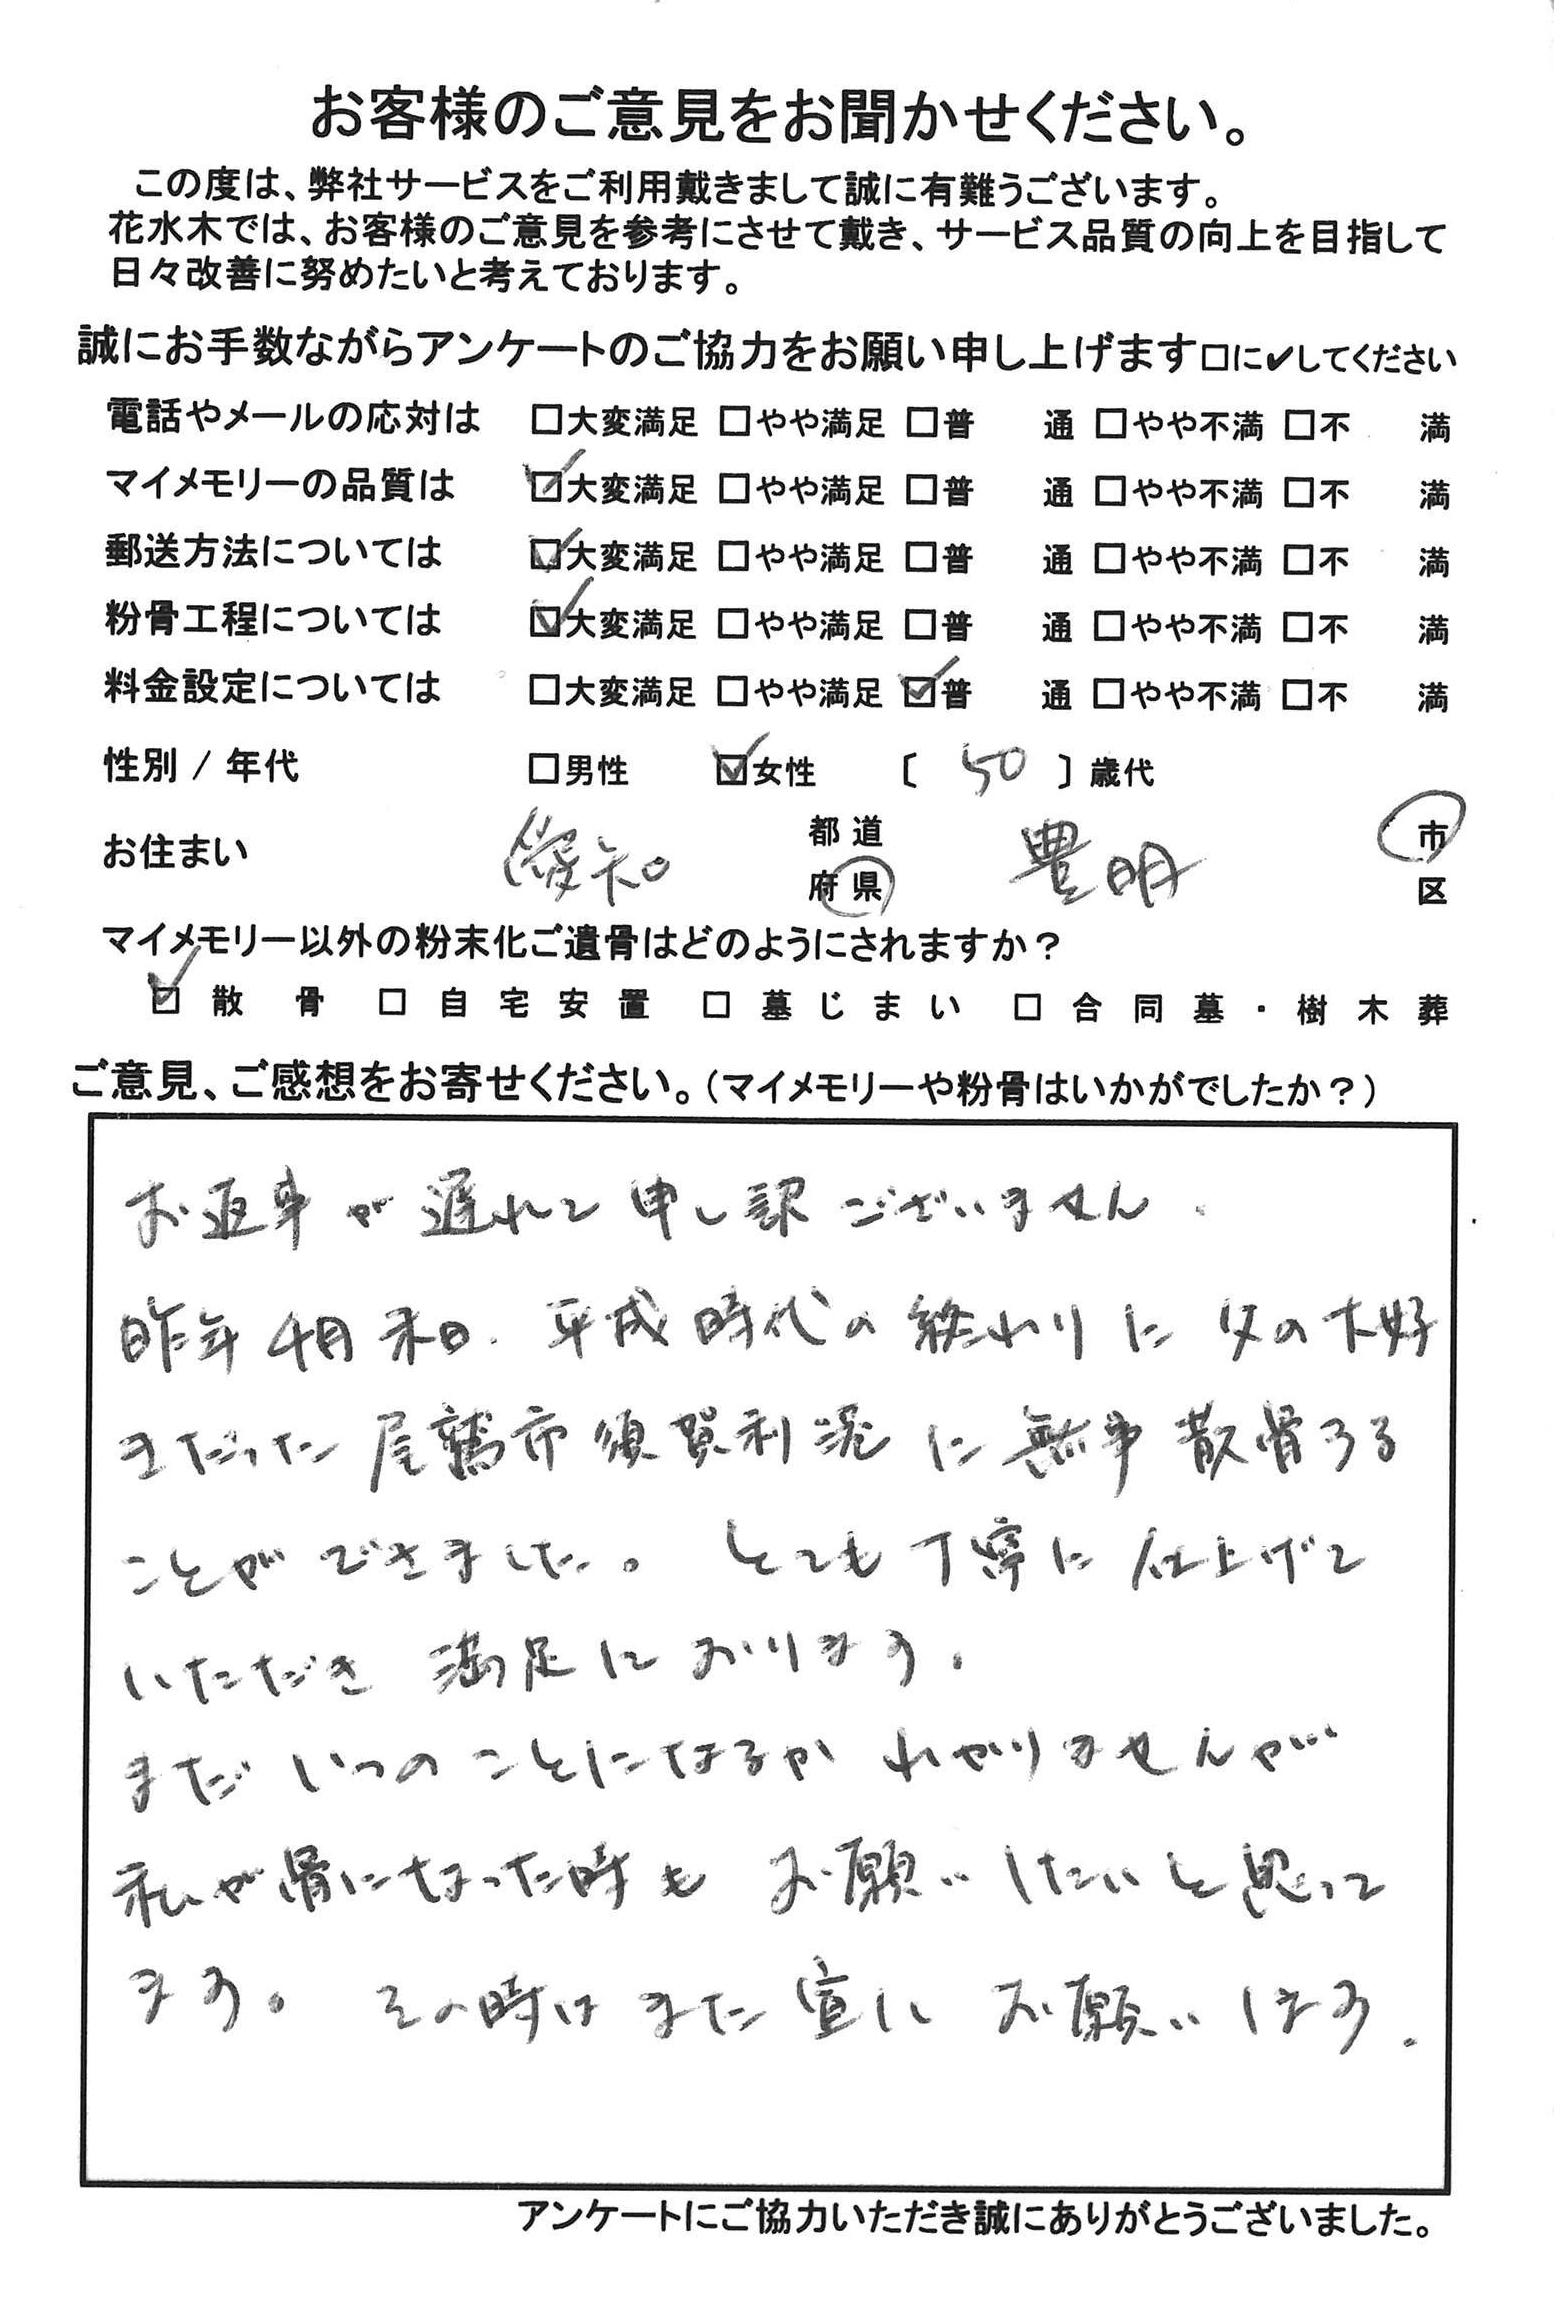 お客様のご意見をお聞かせください。
この度は、弊社サービスをご利用戴きまして誠に有難うございます。
花水木では、お客様のご意見を参考にさせて戴き、サービス品質の向上を目指して
日々改善に努めたいと考えております。
誠にお手数ながらアンケートのご協力をお願い申し上げます□に✔してください
電話やメールの応対は □大変満足 □やや満足 □普 通 □やや不満 □不 満
マイメモリーの品質は ☑大変満足 □やや満足 □普 通 □やや不満 □不 満
郵送方法については ☑大変満足 □やや満足 □普 通 □やや不満 □不 満
粉骨工程については ☑大変満足 □やや満足 □普 通 □やや不満 □不 満
料金設定については □大変満足 □やや満足 ☑普 通 □やや不満 □不 満
性別 / 年代 □男性 ☑女性 〔 50 〕歳代
お住まい 愛知 都道府県 豊明 市区
マイメモリー以外の粉末化ご遺骨はどのようにされますか？
☑ 散骨 □ 自宅安置 □ 墓じまい □ 合同墓・樹木葬
ご意見、ご感想をお寄せください。（マイメモリーや粉骨はいかがでしたか？）
お返事が遅れて申し訳ございません.
昨年4月末日. 平成時代の終わりに父の大好
きだった尾鷲市須賀利沖に無事散骨する
ことができました。とても丁寧に仕上げて
いただき満足しております.
まだいつのことになるかわかりませんが
私が骨になった時もお願いしたいと思って
ます。その時はまた宜しくお願いします.
アンケートにご協力いただき誠にありがとうございました。